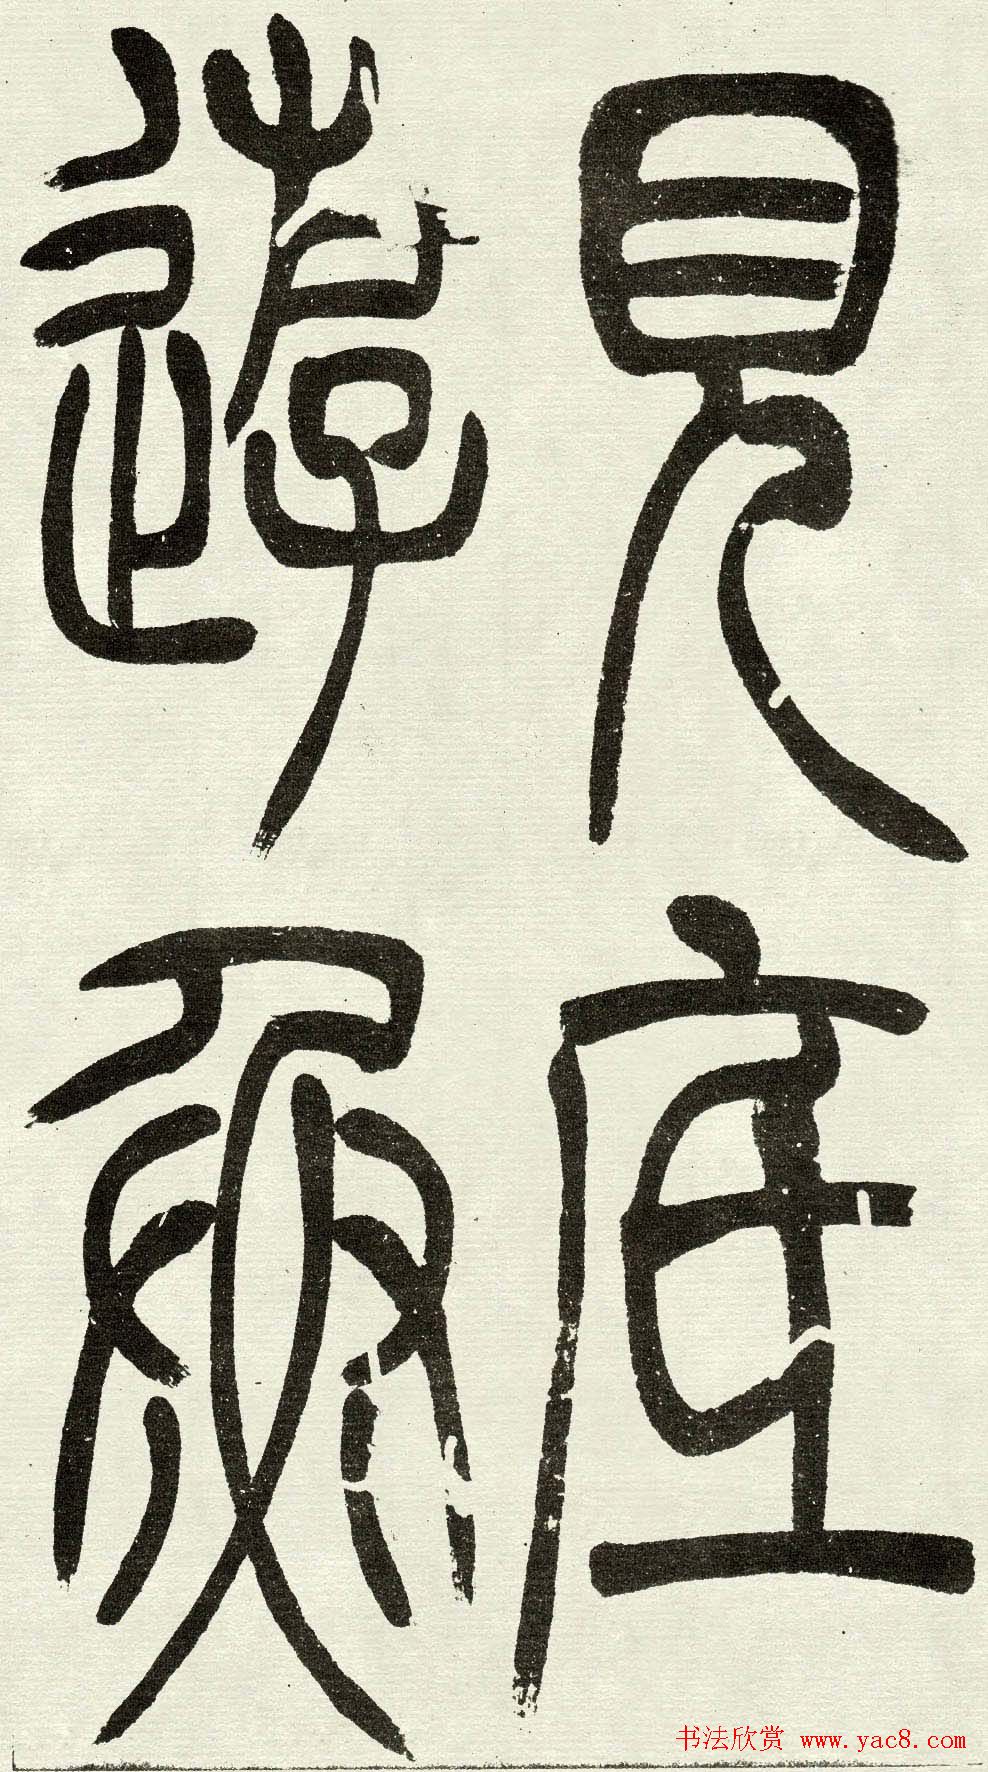 見底
遊魚
书法欣赏 www.yac8.com